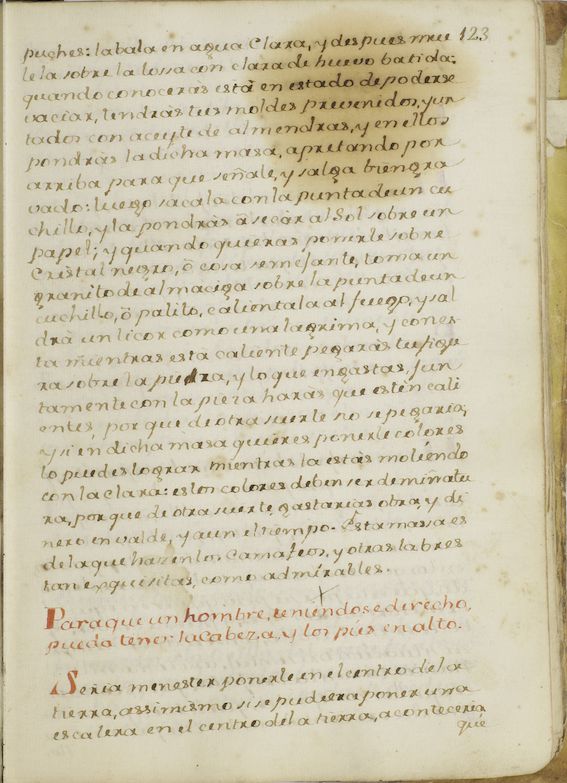 123
puches: labala en agua Clara, y despues mue
lela sobre la lossa con clara de huevo batida:
quando conoceras està en estado de poderse
vaciar, tendràs tus moldes prevenidos, y un
tados con aceyte de almendras, y en ellos
pondràs la dicha masa, apretando por
arriba para que señale, y salga bien gra
vado: luego sacala con la punta de un cu
chillo, y la pondràs à secàr al Sol sobre un
papel; y quando quieras ponerle sobre
Cristal negro, ò cosa semejante, toma un
granito de almaciga sobre la punta de un
cuchillo, ò palito, calientala al fuego, y sal
drà un licor como una lagrima, y con es
ta mientras està caliente pegaràs tu figu
ra sobre la piedra, y lo que engastas, jun
tamente con la pieza haràs que estèn cali
entes, por que de otra suerte no se pegaria,
y si en dicha masa quieres ponerle colores
lo puedes lograr mientras la estàs moliendo
con la Clara: estos colores deben ser de miñatu
ra, por que de otra suerte gastarias obra, y di
nero en valde, y aun el tiempo. Esta massa es
de la que hazen los Camafeos, y otras labres
tan exquisitas, como admirables.
Para que un hombre, teniendose derecho,
pueda tener la Cabeza, y los pies en alto.
Seria menester ponerle en el centro de la
tierra, assimismo si se pudiera poner una
escalera en el centro de la tierra, aconteceria
què